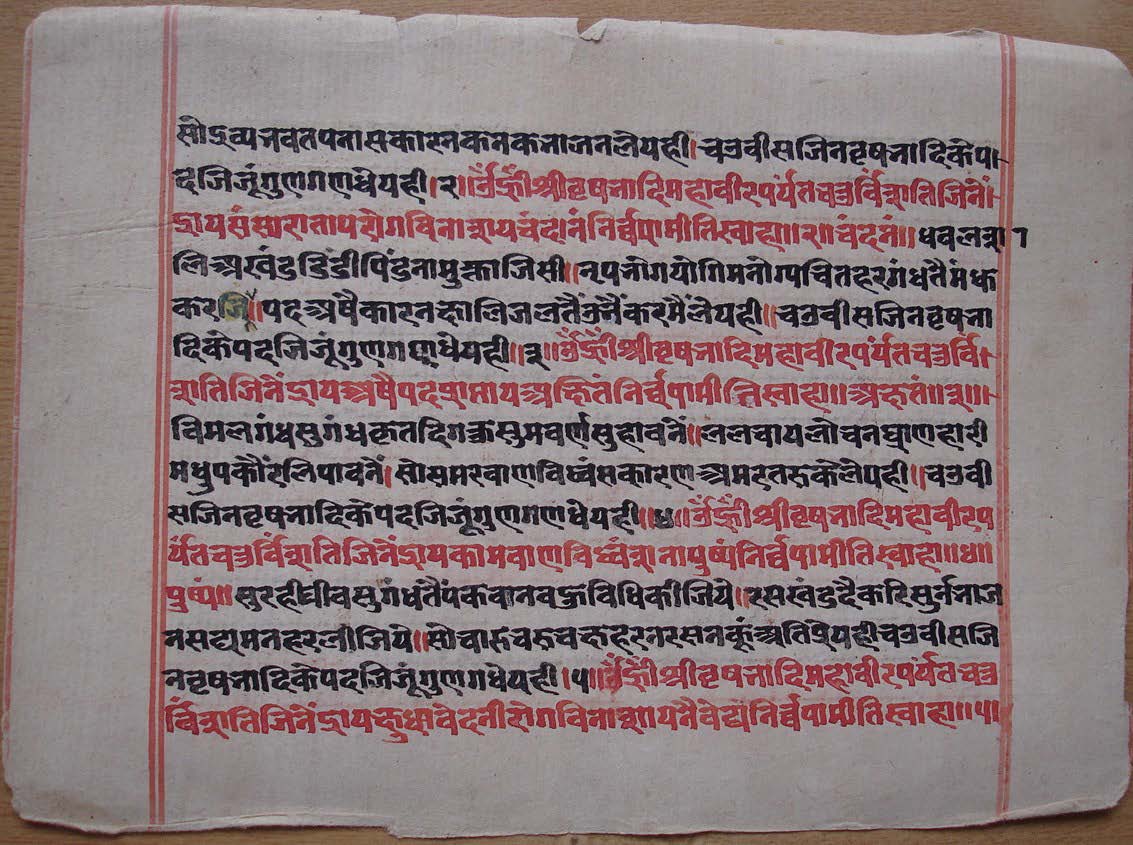 सोद्रव्यनवतपनासकारनकनकनाजनलेयही।चउवीसजिनवृषनादिकेपा
दजिजूंगुणगणधेयही।२।र्उँह्रीँश्रीवृषनादिमहावीरपर्यंतचउर्विशतिजिनें।
द्रायसंसारातापरोगविनाशायचंदनंनिर्वपामीतिस्वाहा॥२॥चंदनं॥धवलशा
लिअखंडडिंडीपिंडनामुक्ताजिसी॥नृपनोगयोगिमनोग्पचितहरगंधतैमंझ
करजि॥पदअषैकारनक्षालिजलतैंउनैंकरमैंलेयही॥चउवीसजिनवृषना
दिकेपदजिजूंगुणगणधेयही॥३॥र्उँह्रीँश्रीवृषनादिमहावीरपर्यंतचउर्वि।
शतिजिनेंद्रायअषैपदप्राप्तायअक्षितंनिर्वपामीतिस्वाहा॥अक्षतं॥३॥
विमलगंधसुगंधकृतदिगकुसुमवर्णसुहावनें॥ललचायलोचनघ्राणहारी
मधुपकौंरलिपावनें।सोसमरवाणविध्वंसकारणअमरतरुकेलेयही॥चउवी
सजिनवृषनादिकेपदजिजूंगुणगणधेयही॥४॥र्उँह्रीँश्रीवृषनादिमहावीरप
र्यंतचउर्विशतिजिनेंद्रायकामवाणविध्वंशनापुष्पंनिर्वपामीतिस्वाहा॥४॥
पुष्पं॥सुरहीघीवसुगंधतैंपकवानवहुविधिकीजिये॥रसखंडदैकरिसुर्ननाज
नसद्यमनहरलीजिये॥सोचारुचरुचक्षहरनरसनकूंअतिप्रेयहीचउवीसजि
नवृषनादिकेपदजिजूंगुणगधेयही।५॥र्उँह्रीँश्रीवृषनादिमहावीरपर्यंतचउ
र्विशतिजिनेंद्रायक्षुधावेदनीरोगविनाशायनैवेद्यंनिर्वपामीतिस्वाहा॥५॥